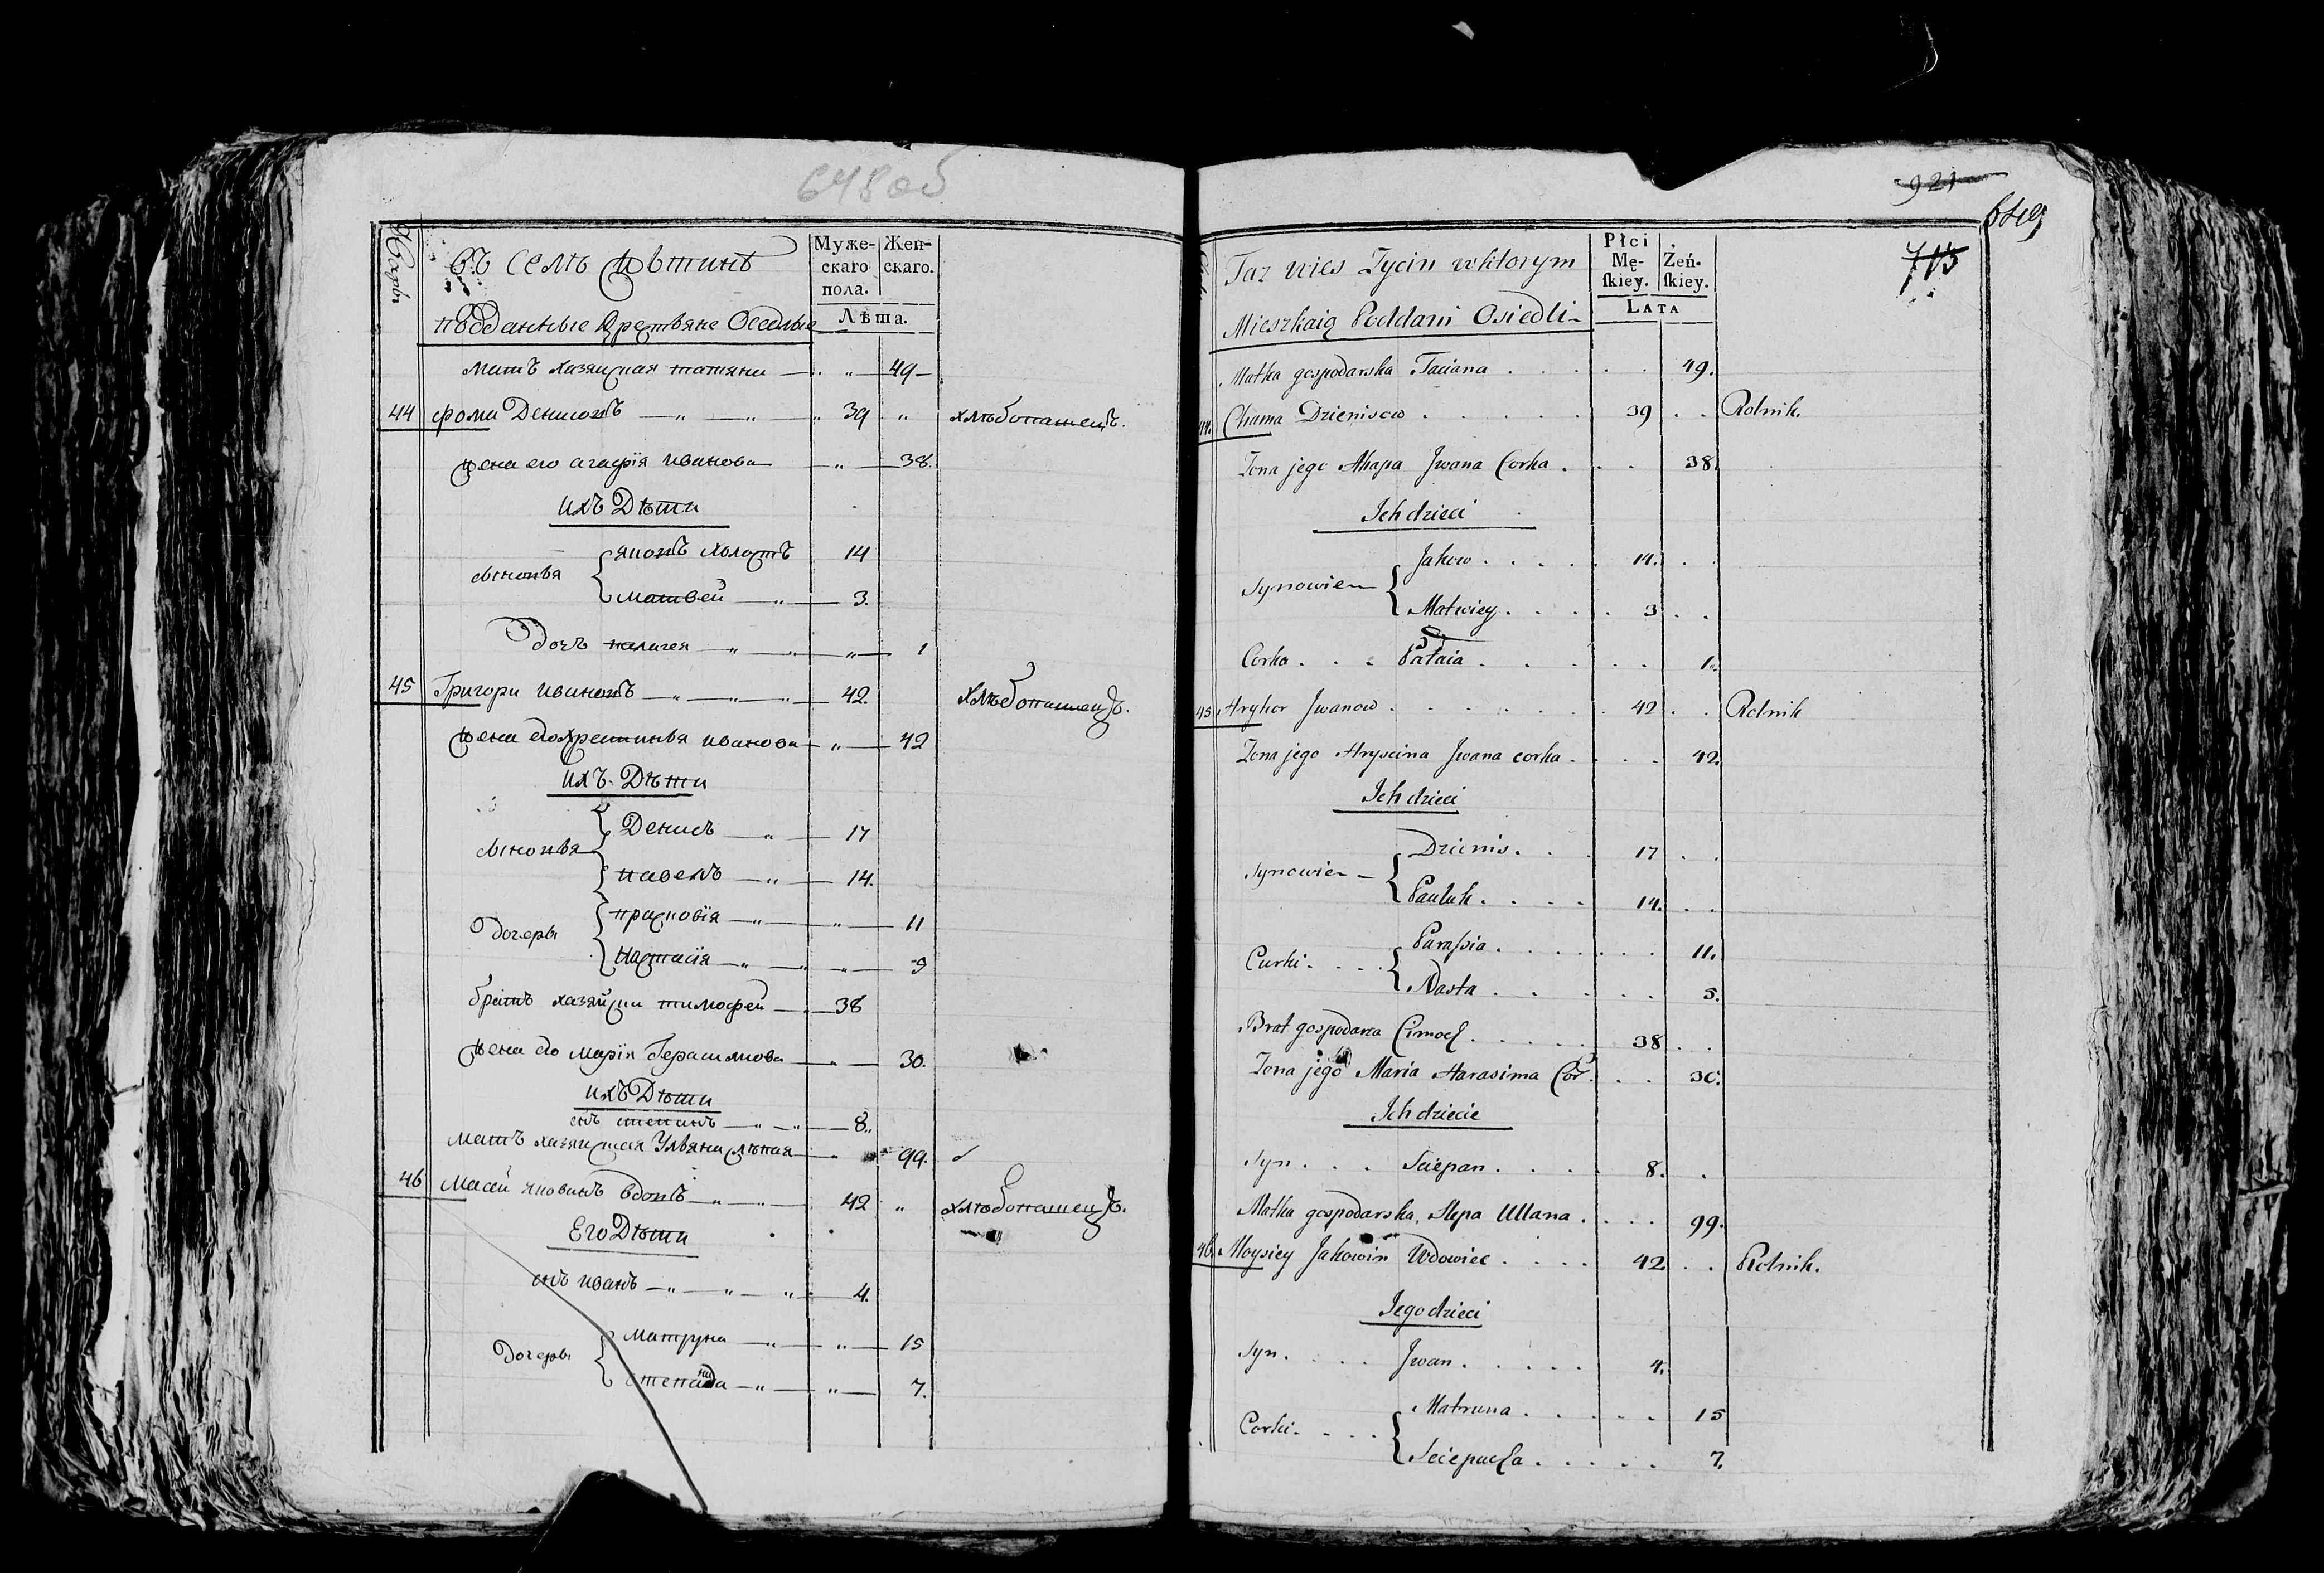 648 об
Въ селѣ Житинѣ
Муже-
скаго
пола.
Жен-
скаго.
подданные крестьяне Оседлые
Лѣта.
мать хазяиская татяна — „ 49
44 Фома Денисовъ — „ — „ 39 „ хлѣбопашецъ.
жена его агафія иванова — „ 38.
ихъ Дѣти
сыновья яковъ холостъ 14
матвей — „ 3.
дочъ палагея — „ — „ 1
45 Григори ивановъ — „ — „ 42. хлѣбопашецъ.
жена его хрестинья иванова — „ 42
ихъ Дѣти
сыновья Денисъ — „ 17
павелъ — „ 14.
дочеры прасковія — „ — „ 11
настасія — „ — „ 9
братъ хазяйски тимофей — 38
жена его марія Герасимова — „ 30.
ихъ Дѣти
снъ степанъ — „ — „ 8.
мать хазяиская Ульяна слѣпая — 99.
46 Масей яковинъ вдовъ — „ 42 „ хлѣбопашецъ.
Его Дѣти
снъ иванъ — „ — „ 4.
дочеры матруна — „ — „ 15
— „ — „ 7.
921
649
715
Taz wies Zycin wktorym
Płci
Mę-
ſkiey.
Żeń-
ſkiey.
Mieszkaią Poddani Osiedli
LATA
Matka gospodarska Taciana . . . . 49.
44. Chama Dzienisow . . . . 39 . . Rolnik.
Zona jego Ahapa Jwana Corka . . . 38.
Ich dzieci
Synowie Jakow . . . . 14. . .
Matwiey . . . . 3 . .
Corka . . . Pałaia . . . . 1.
45. Hryhor Jwanow . . . . 42 . . Rolnik
Zona jego Hryscina Jwana corka . . . 42.
Ich dzieci
Synowie Dzienis . . . 17 . .
Pauluk . . . . 14. . .
Curki . . . Paraſsia . . . . 11.
Nasta . . . . 5.
Brat gospodarza Cimoch . . . . 38 . .
Zona jego Maria Harasima Cor . . . 30.
Ich dziecie
Syn . . . Sciepan . . . . 8. .
Matka gospodarska, Slepa Ullana . . . . 99.
46. Moysiey Jakowin Wdowiec . . . . 42 . . Rolnik.
Jego dzieci
Syn . . . . Jwan . . . . 4.
Corki . . . Matruna . . . . 15
Sciepucha . . . . 7.